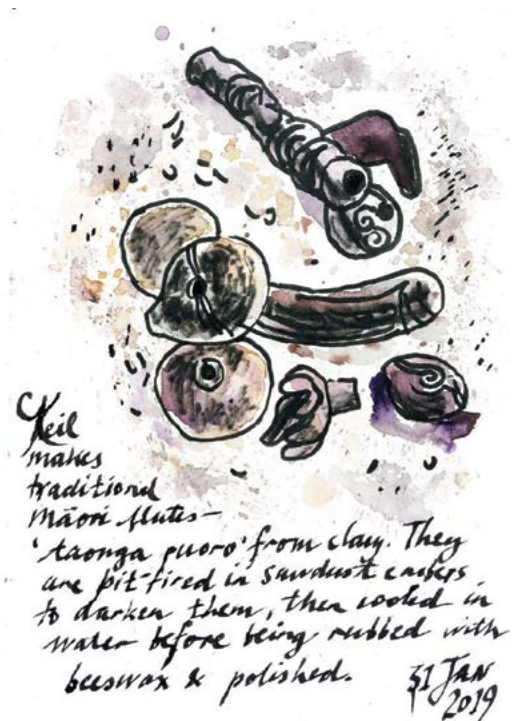 Neil
makes
traditional
Māori flutes –
'taonga puoro' from clay. They
are pit-fired in sawdust embers
to darken them, then cooled in
water before being rubbed with
beeswax & polished.
31 JAN
2019